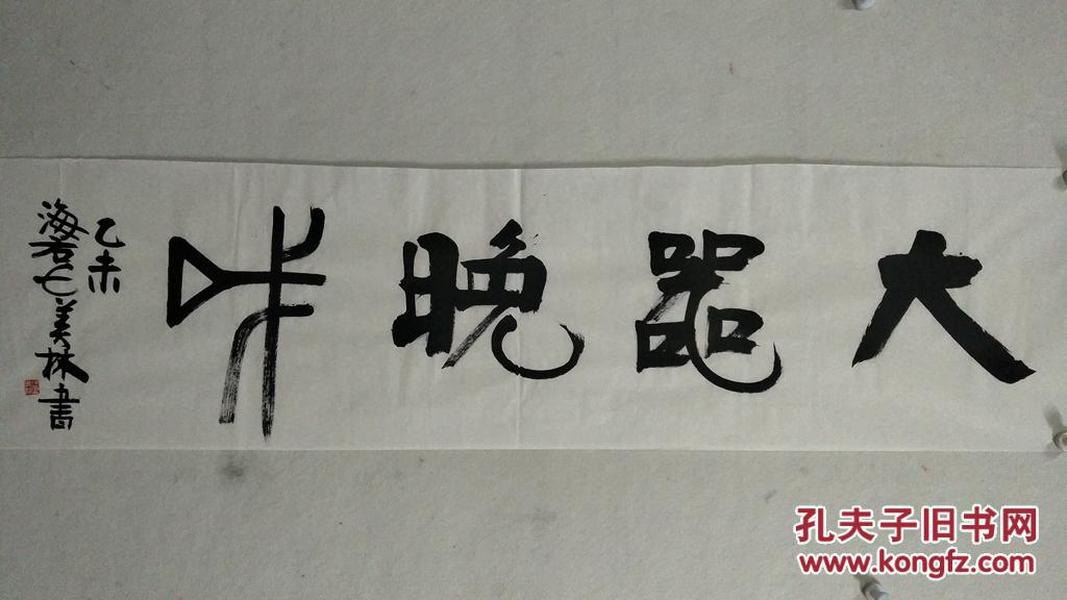 大器晚成
乙未
海若七美林書
孔夫子旧书网
www.kongfz.com